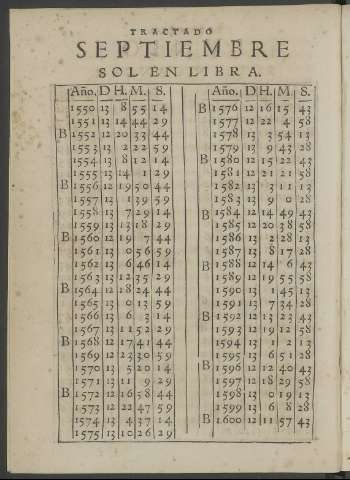 TRACTADO
SEPTIEMBRE
SOL EN LIBRA.
Año. D H. M. S.
1550 13 8 55 14
1551 13 14 44 29
B 1552 12 20 33 44
1553 13 2 22 59
1554 13 8 12 14
1555 13 14 1 29
B 1556 12 19 50 44
1557 13 1 39 59
1558 13 7 29 14
1559 13 13 18 29
B 1560 12 19 7 44
1561 13 0 56 59
1562 13 6 46 14
1563 13 12 35 29
B 1564 12 18 24 44
1565 13 0 13 59
1566 13 6 3 14
1567 13 11 52 29
B 1568 12 17 41 44
1569 12 23 30 59
1570 13 5 20 14
1571 13 11 9 29
B 1572 12 16 58 44
1573 12 22 47 59
1574 13 4 37 14
1575 13 10 26 29
Año. D H. M. S.
B 1576 12 16 15 43
1577 12 22 4 58
1578 13 3 54 13
1579 13 9 43 28
B 1580 12 15 22 43
1581 12 21 21 58
1582 13 3 11 13
1583 13 9 0 28
B 1584 12 14 49 43
1585 12 20 38 58
1586 13 2 28 13
1587 13 8 17 28
B 1588 12 14 6 43
1589 12 19 55 58
1590 13 1 45 13
1591 13 7 34 28
B 1592 12 13 23 43
1593 12 19 12 58
1594 13 1 2 13
1595 13 6 51 28
B 1596 12 12 40 43
1597 12 18 29 58
1598 13 0 19 13
1599 13 6 8 28
B 1600 12 11 57 43